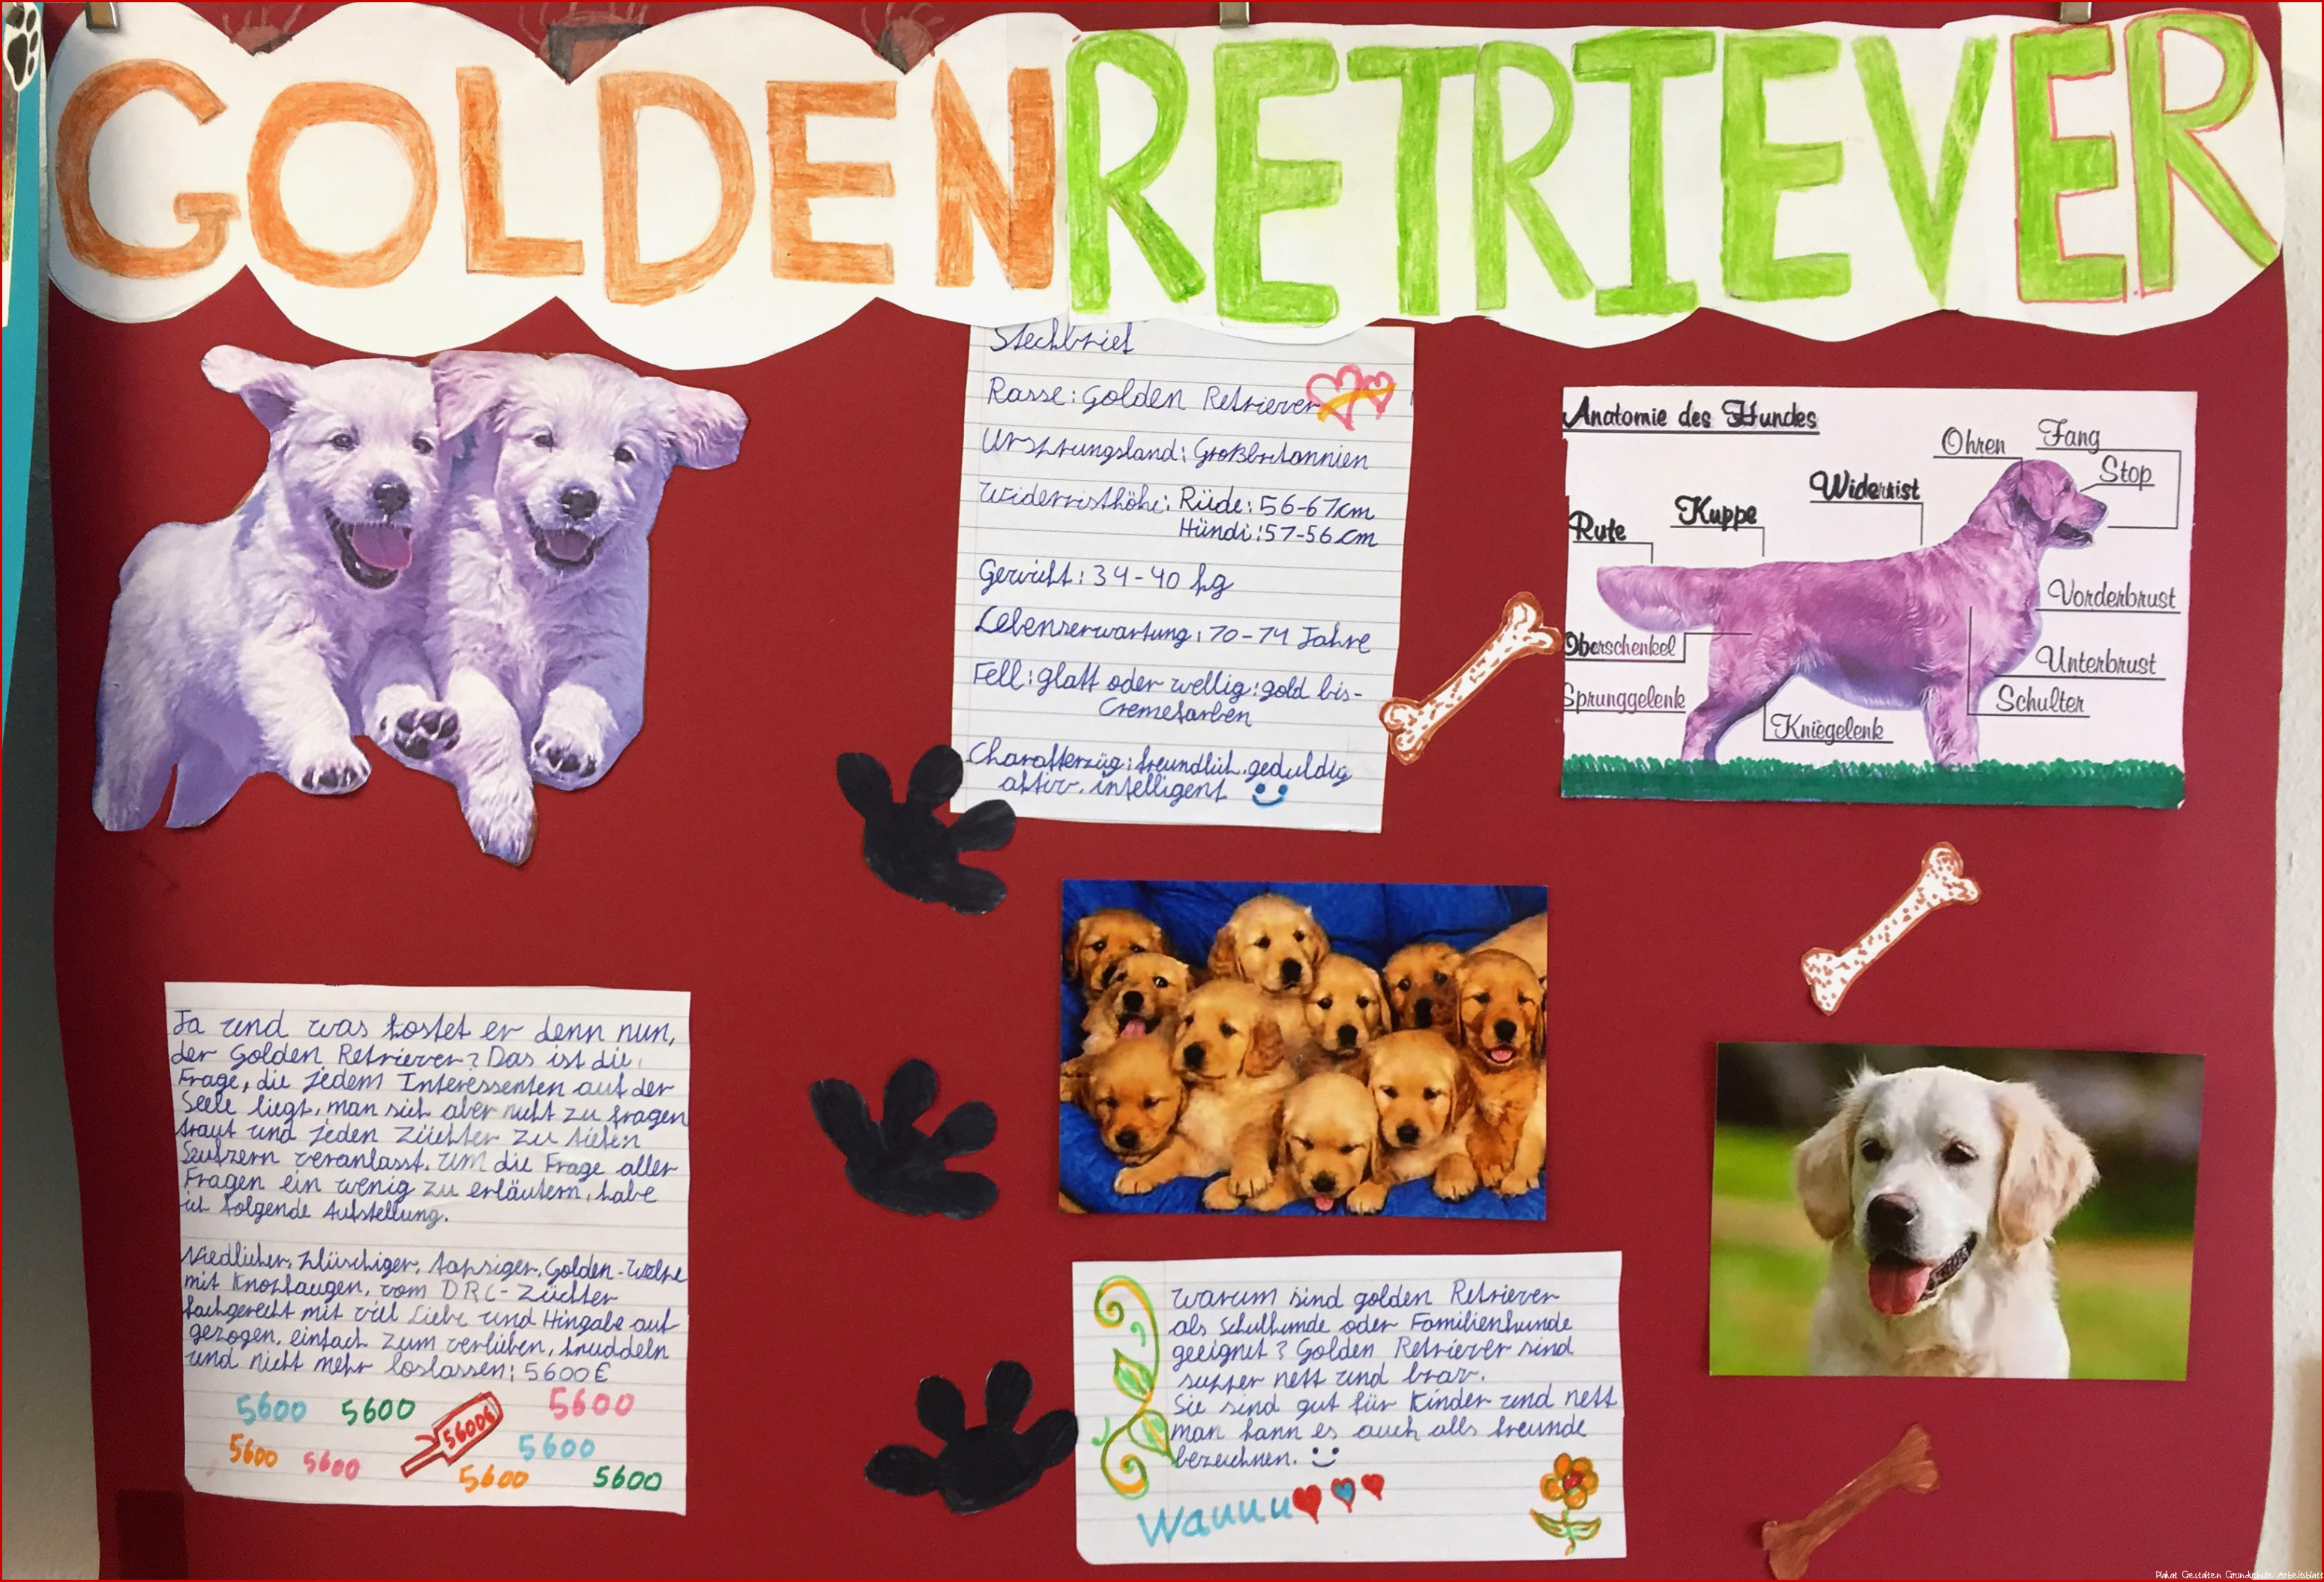 GOLDEN RETRIEVER
Steckbrief
Rasse: Golden Retriever
Ursprungsland: Großbritannien
Widerristhöhe: Rüde: 56-61cm
Hündi: 51-56cm
Gewicht: 34-40 kg
Lebenserwartung: 10-14 Jahre
Fell: glatt oder wellig: gold bis-
Cremefarben
Charakterzüg: freundlich, geduldig
aktiv, intelligent
Anatomie des Hundes
Ohren
Fang
Stop
Widerrist
Kuppe
Rute
Vorderbrust
Oberschenkel
Unterbrust
Sprunggelenk
Schulter
Kniegelenk
Ja und was kostet er denn nun,
der Golden Retriever? Das ist die
Frage, die jedem Interessenten auf der
Seele liegt, man sich aber nicht zu fragen
traut und jeden Züchter zu tiefen
Seufzern veranlasst. Um die Frage aller
Fragen ein wenig zu erläutern, habe
ich folgende Aufstellung.
Niedlicher, plüschiger, tapsiger, Golden-Welpe
mit Knopfaugen, vom DRC-Züchter
fachgerecht mit viel Liebe und Hingabe auf
gezogen, einfach zum verlieben, knuddeln
und nicht mehr loslassen: 5600€
5600 5600 5600€ 5600
5600 5600 5600
5600 5600
Warum sind golden Retriever
als Schulhunde oder Familienhunde
geeignet? Golden Retriever sind
supper nett und brav.
Sie sind gut für Kinder und nett
man kann es auch alls freunde
bezeichnen.
Wauuu
Plakat Gestalten Grundschule Arbeitsblatt